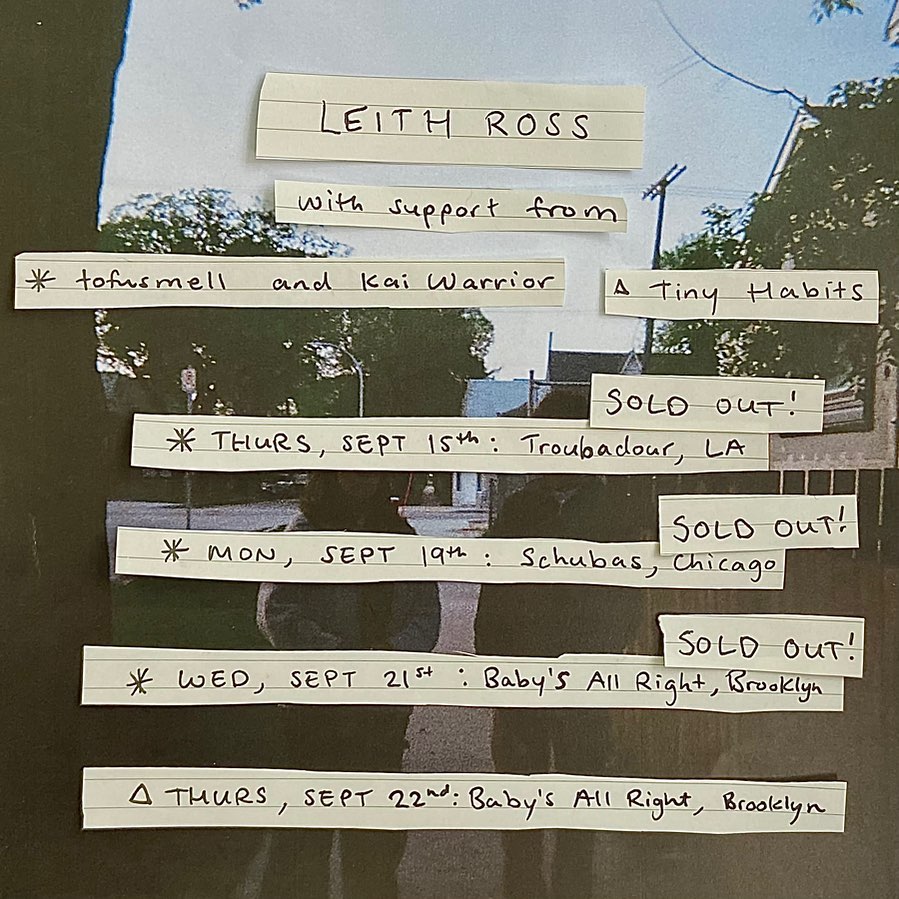 LEITH ROSS
with support from
✳ tofusmell and Kai Warrior
△ Tiny Habits
SOLD OUT!
✳ THURS, SEPT 15th: Troubadour, LA
SOLD OUT!
✳ MON, SEPT 19th: Schubas, Chicago
SOLD OUT!
✳ WED, SEPT 21st: Baby's All Right, Brooklyn
△ THURS, SEPT 22nd: Baby's All Right, Brooklyn